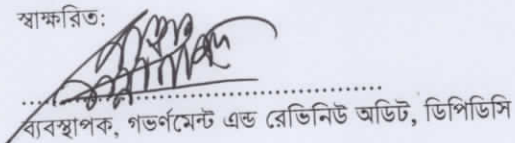 স্বাক্ষরিত:
ব্যবস্থাপক, গভর্ণমেন্ট এন্ড রেভিনিউ অডিট, ডিপিডিসি